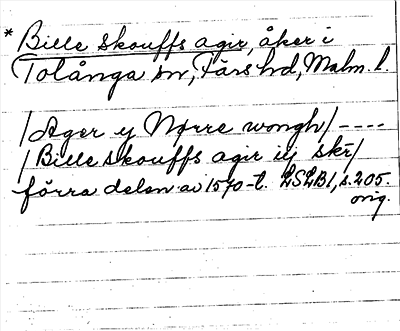 * Bille skouffs agir, åker i
Tolånga sn, Färs hd, Malm. l.
/Ager y Nørre wongh/ ----
/Bille skouffs agir iij skr̄/
förra delen av 1570-t. LSLB1, s. 205.
orig.